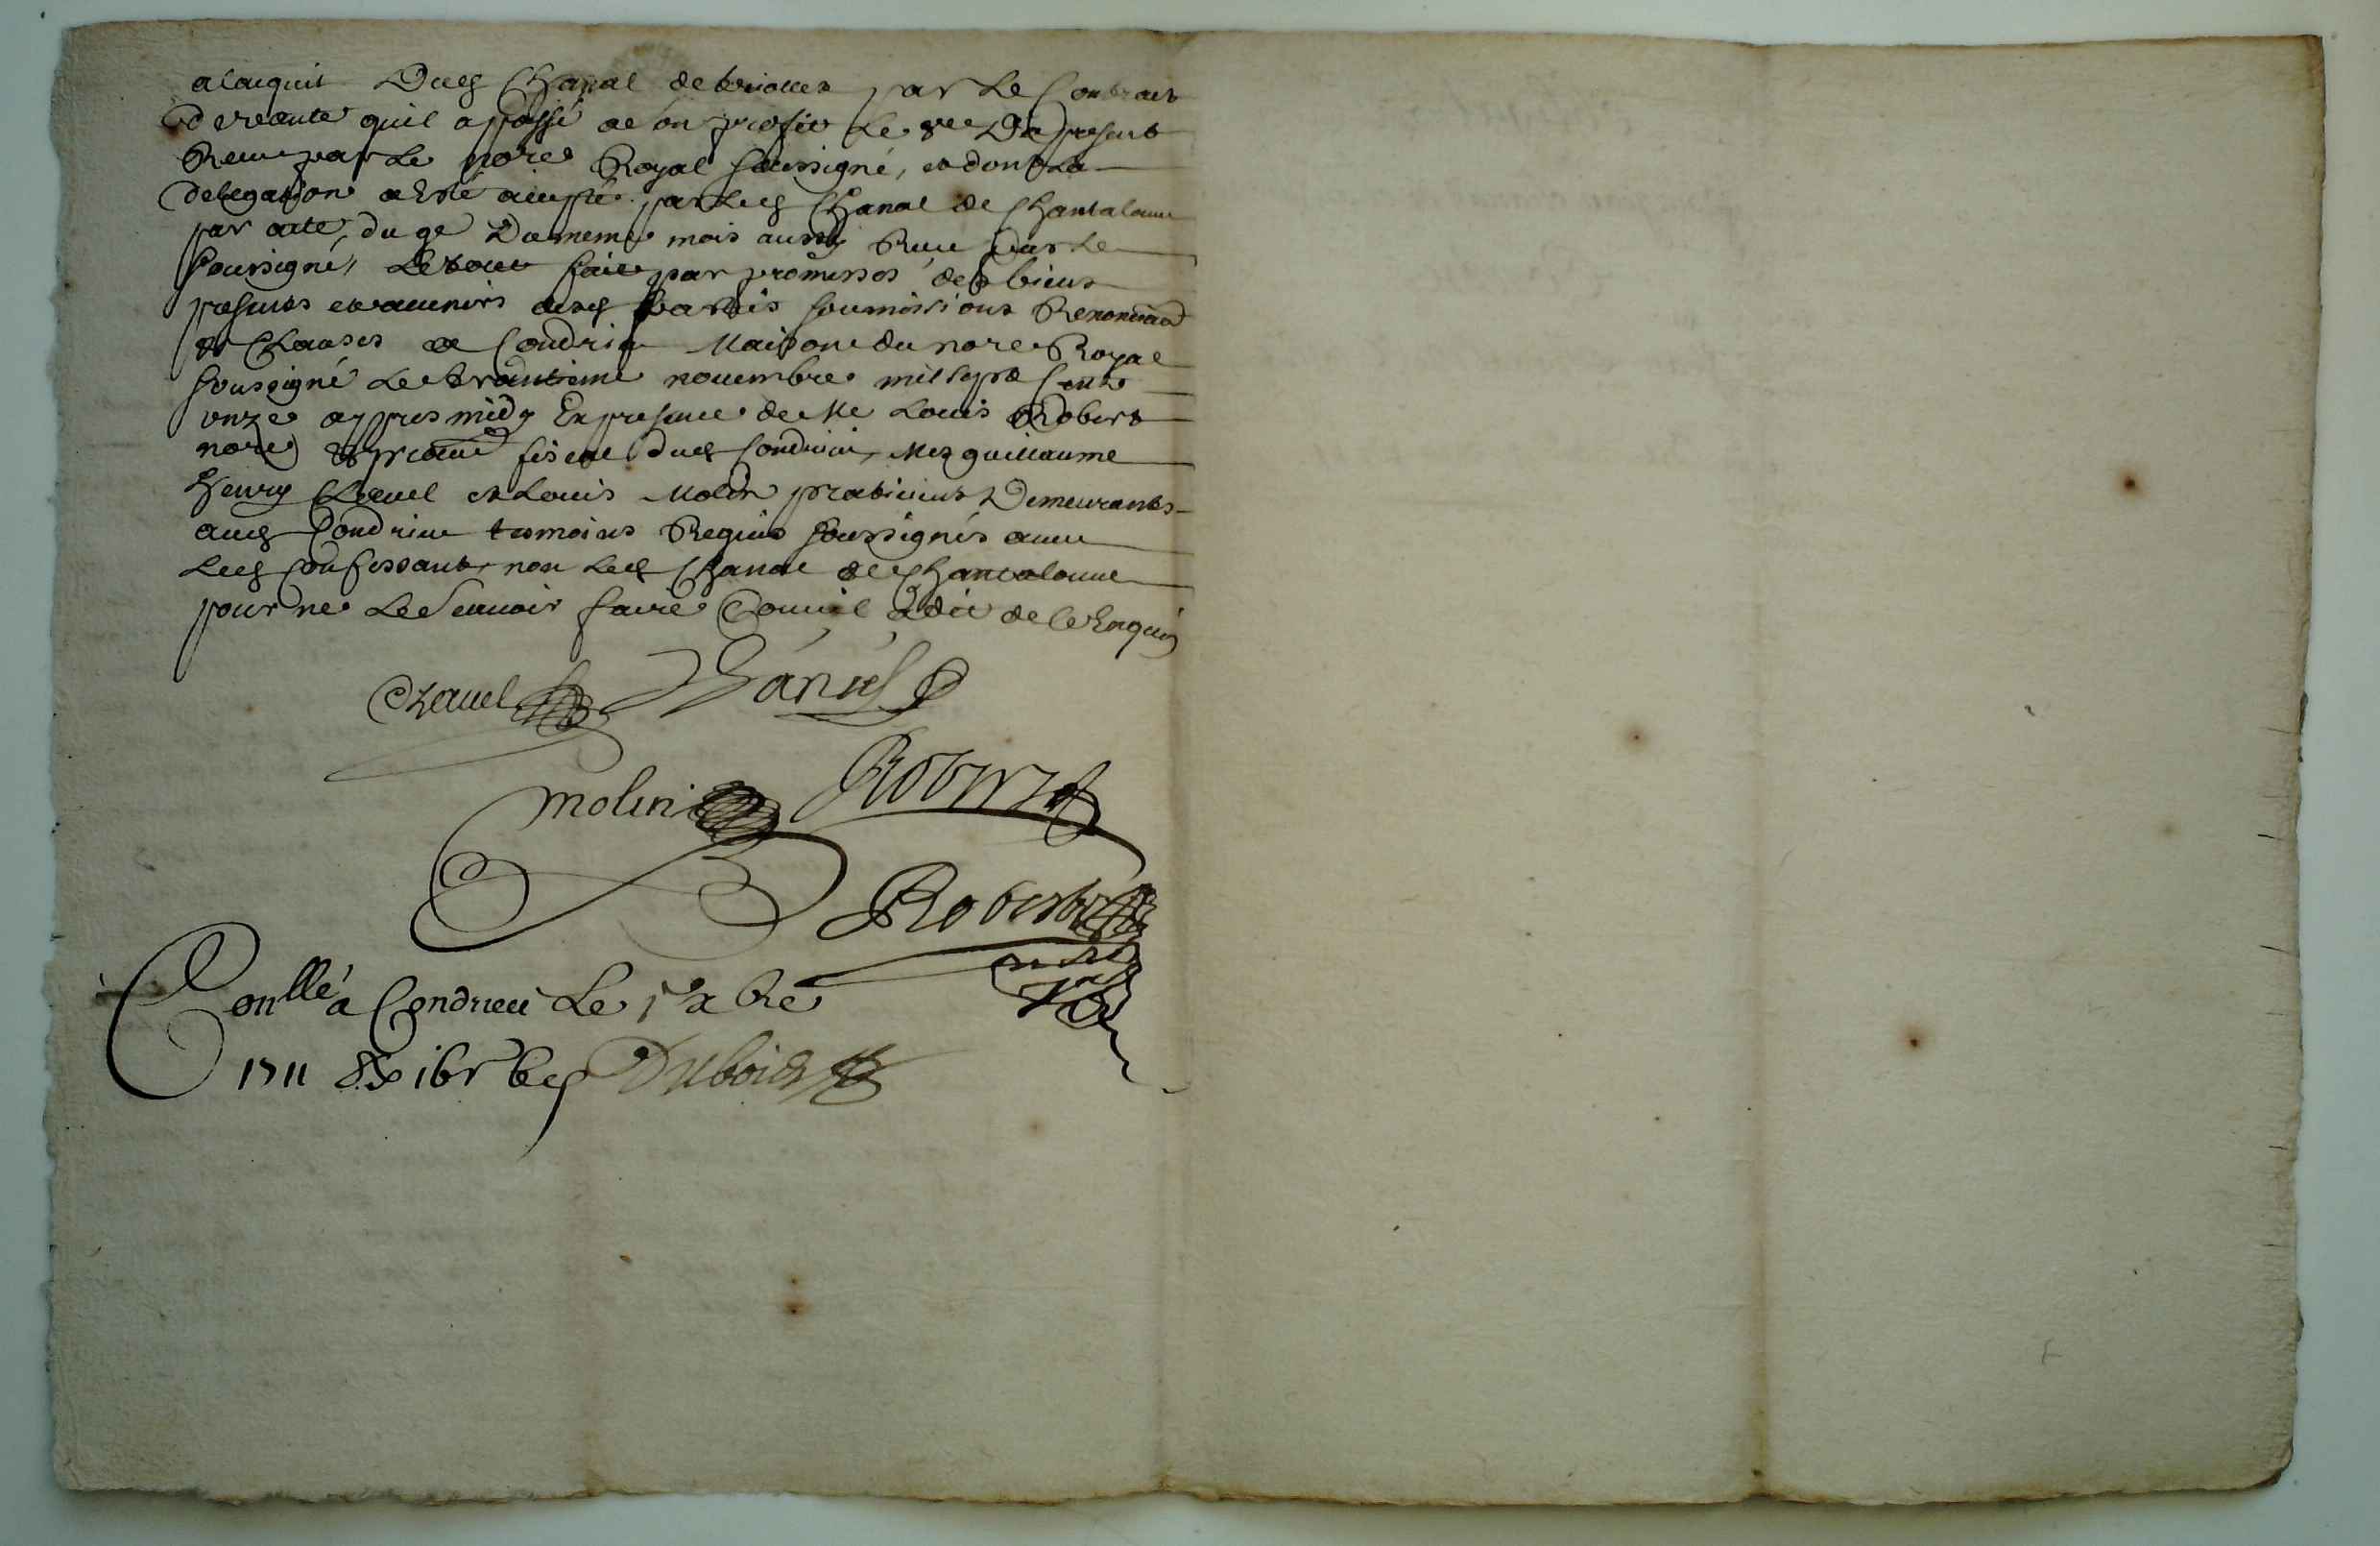 alacquit Dud Chanal de briolles par Le Contract
de vante quil a passé a son profit Le 8e Du present
Receu par Le nore Royal soussigné, et dont La
delegation a Esté acceptée par Led Chanal de Chantaloue
par acte du 9e Du meme mois aussy Receu par Le
soussigné, Le tout fait par promesses des biens
presents et advenirs desd parties soumissions Renonciaons
et Clauses a Condrieu Maison du nore Royal
soussigné Le trantieme nouembre mil sept Cents
onze appres midy En presence de Me Louis Robert
nore et procur fiscal dud Condrieu, Mes guillaume
henry Chauel et Louis Molin praticiens Demeurants
aud Condrieu tesmoins Requis soussignés auec
Led Confessant, non Led Chanal de Chantaloue
pour ne Le Scauoir faire Comme il a dit de Ce Enquis
Chauel Chanal
molin Robert
Robert
nore Ral
Conllé a Condrieu Le 1er xbre
1711 Dubois